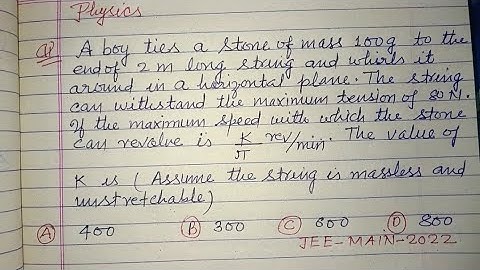 Physics
Q1 A boy ties a stone of mass 100g to the
end of 2 m long string and whirls it
around in a horizontal plane. The string
can withstand the maximum tension of 80 N.
If the maximum speed with which the stone
can revolve is K/π rev/min. The value of
K is (Assume the string is massless and
unstretchable)
A 400 B 300 C 600 D 800
JEE-MAIN-2022